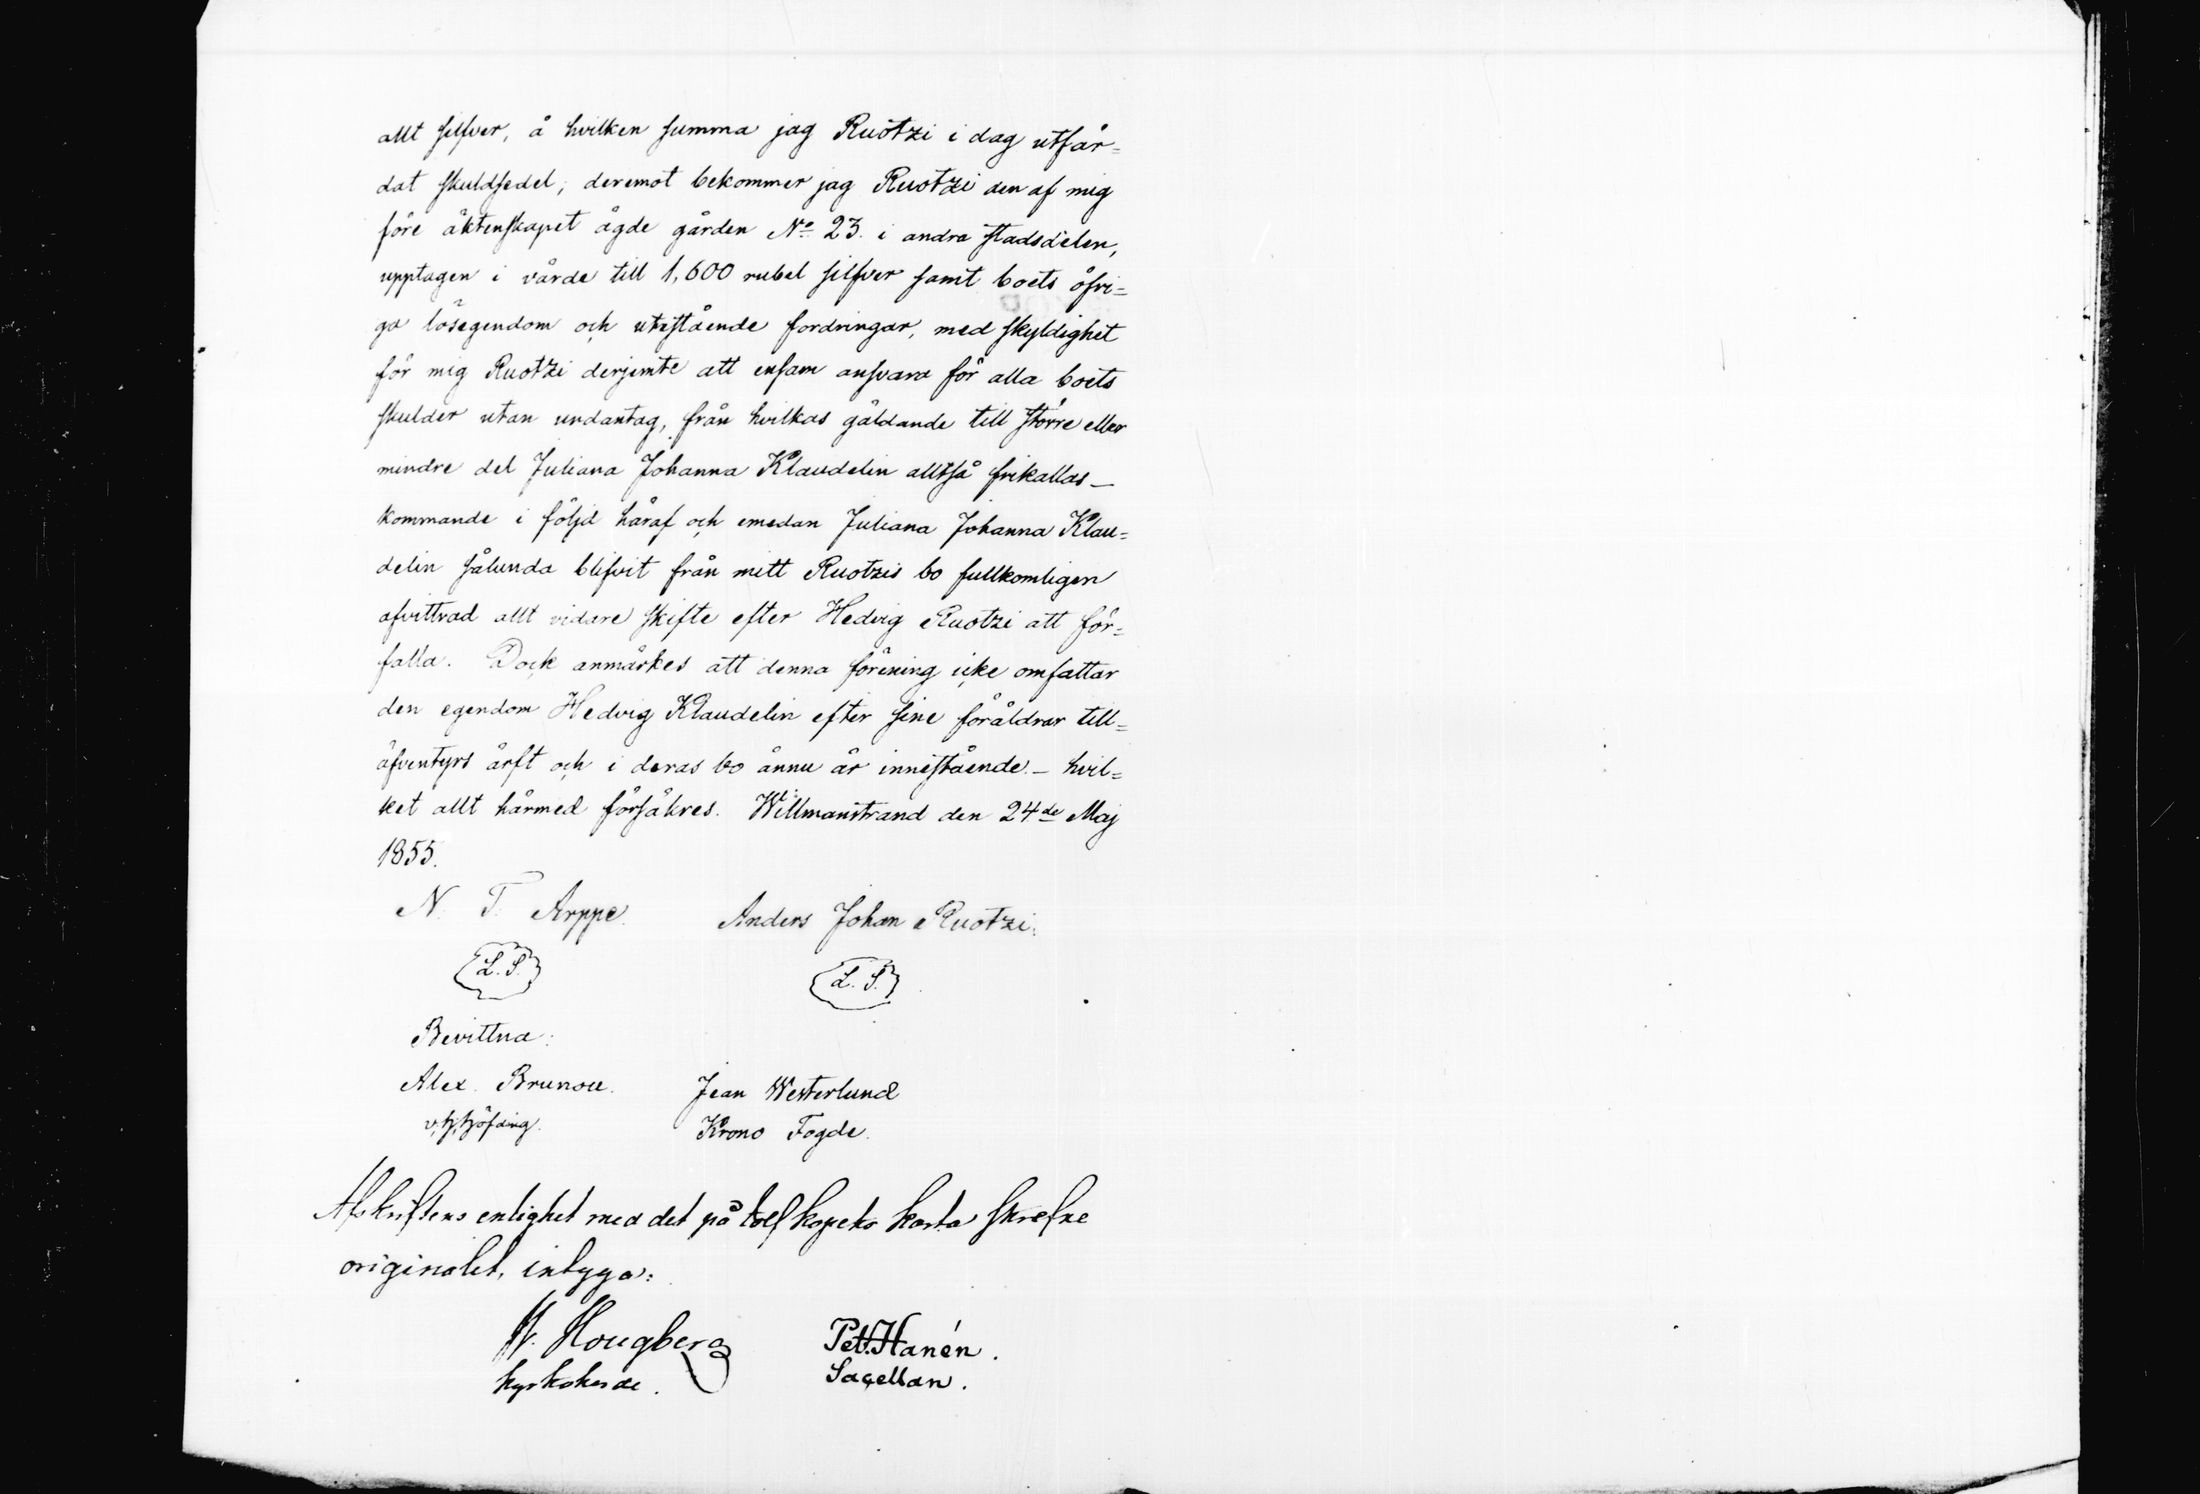 allt silfver, å hvilken summa jag Ruotzi i dag utfär=
dat skuldsedel; deremot bekommer jag Ruotzi den af mig
före äktenskapet ägde gården No 23. i andra stadsdelen,
upptagen i värde till 1,600 rubel silfver samt boets öfri=
ga lösegendom och utestående fordringar, med skyldighet
för mig Ruotzi derjemte att ensam ansvara för alla boets
skulder utan undantag, från hvilkas gäldande till större eller
mindre del Juliana Johanna Klaudelin alltså frikallas —
kommande i följd häraf och emedan Juliana Johanna Klau=
delin sålunda blifvit från mitt Ruotzis bo fullkomligen
afvittrad allt vidare skifte efter Hedvig Ruotzi att för=
falla. Dock anmärkes att denna förening icke omfattar
den egendom Hedvig Klaudelin efter sine föräldrar till=
äfventyrs ärft och i deras bo ännu är innestående. — hvil=
ket allt härmed försäkres. Willmanstrand den 24de Maj
1855.
N. T. Arppe. Anders Johan Ruotzi.
L. S. L. S.
Bevittna:
Alex. Brunou. Jean Westerlund
v. höfding. Krono Fogde.
Afskriftens enlighet med det på tolf kopeks karta skrefne
originalet, intyga:
Hougberg Pet. Hanén.
Kyrkoherde. Sacellan.